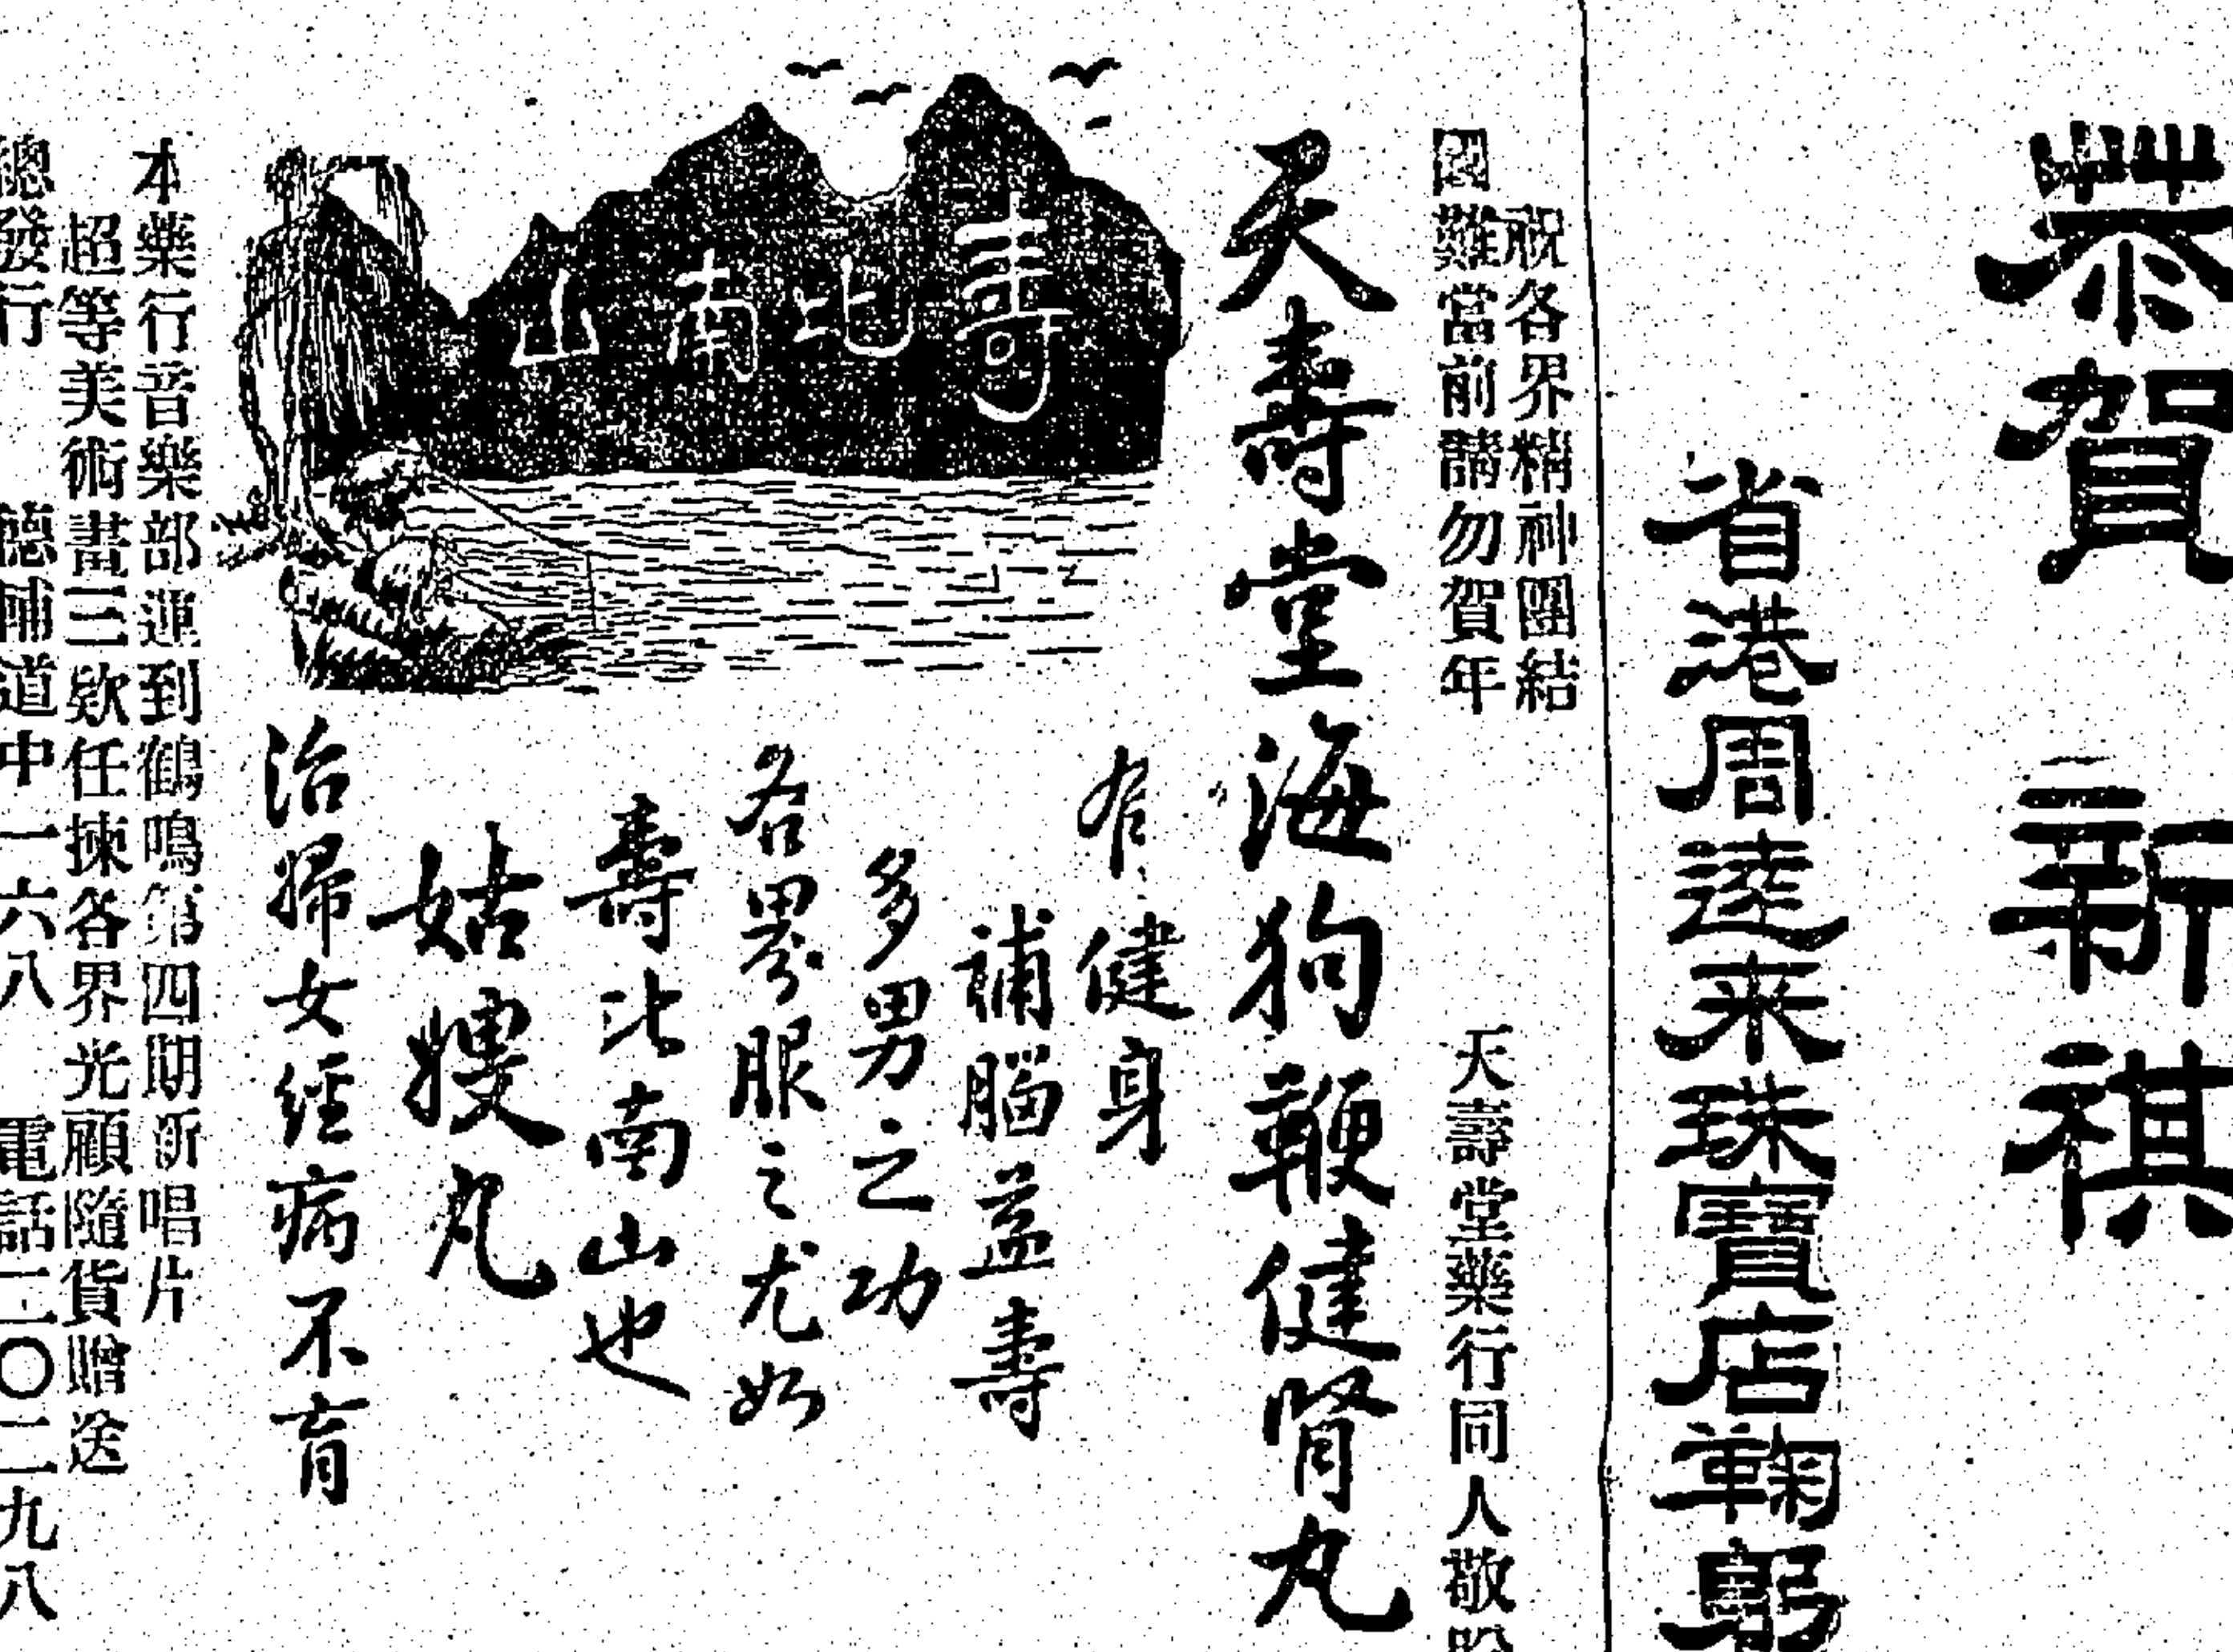 恭賀 新祺
省港周逵来珠寶店鞠躬
祝各界精神團結
國難當前請勿賀年
天壽堂藥行同人敬
天壽堂海狗鞭健腎丸
有健身
補腦益壽
多男之功
各界服之尤如
壽比南山也
壽比南山
姑嫂丸
治婦女經病不育
本藥行音樂部運到鶴鳴第四期新唱片
超等美術畫三款任揀各界光顧隨貨贈送
總發行 德輔道中一六八 電話二〇二九八